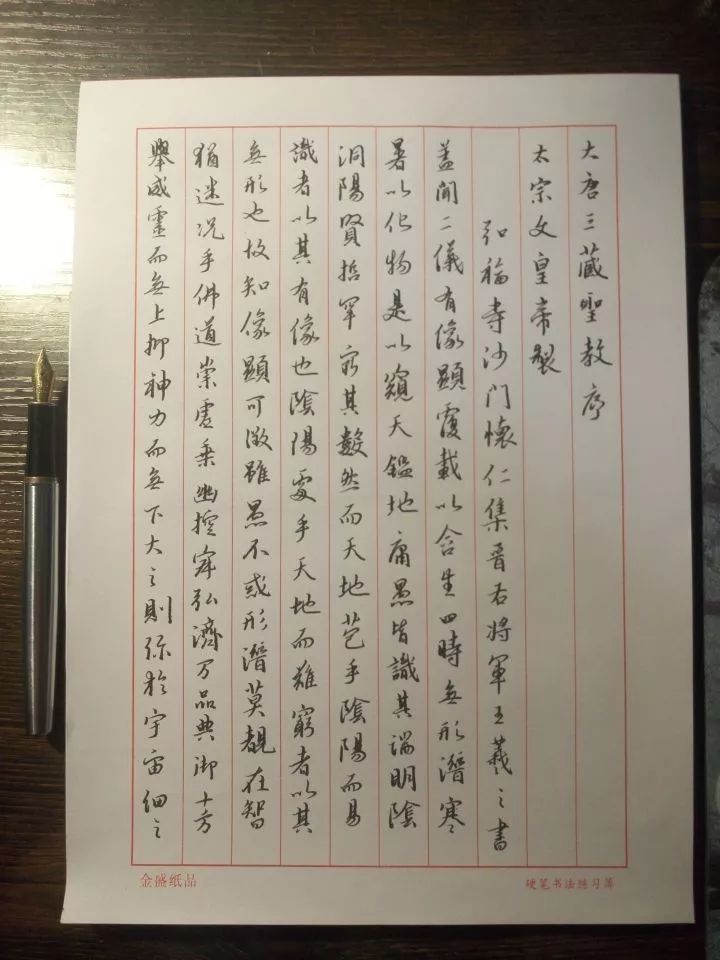 大唐三藏聖教序
太宗文皇帝製
弘福寺沙門懷仁集晉右將軍王羲之書
蓋聞二儀有像顯覆載以含生四時無形潛寒
暑以化物是以窺天鑑地庸愚皆識其端明陰
洞陽賢哲罕窮其數然而天地苞乎陰陽而易
識者以其有像也陰陽處乎天地而難窮者以其
無形也故知像顯可徵雖愚不惑形潛莫覩在智
猶迷况乎佛道崇虛乗幽控寂弘濟万品典御十方
舉威靈而無上抑神力而無下大之則弥於宇宙細之
金盛纸品
硬笔书法练习簿